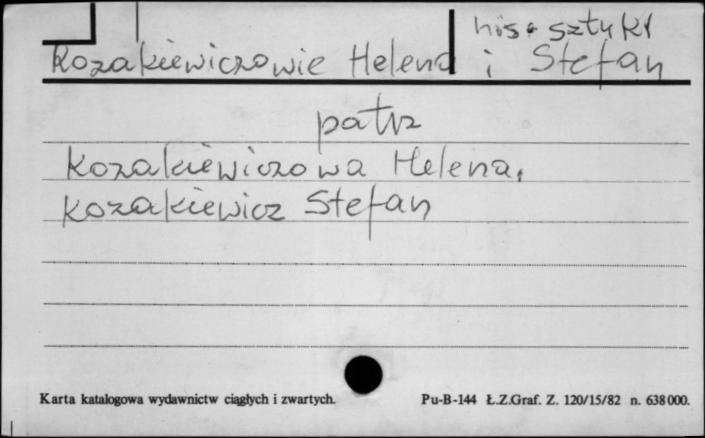 his. sztuki
Kozakiewiczowie Helena i Stefan
patrz
Kozakiewiczowa Helena,
Kozakiewicz Stefan
Karta katalogowa wydawnictw ciągłych i zwartych. Pu-B-144 Ł.Z.Graf. Z. 120/15/82 n. 638000.